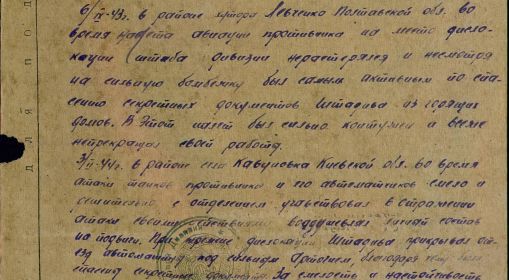 6/IX-43г. в районе хутора Левченко Полтавской обл. во
время налета авиации противника на место дисло-
кации штаба дивизии нерастерялся и несмотря
на сильную бомбежку был самым активным по спа-
сению секретных документов Штадива из горящих
домов. В этот налет был сильно контужен и все же
непрекращал своей работы.
3/II-44г. в районе села Кавуновка Киевской обл. во время
атаки танков противника и его автоматчиков смело и
решительно с отделением участвовал в отражении
атаки своими действиями воодушевлял личный состав
на подвиги. При прежние дислокации Штадива прикрывал от-
езд автомашины под сильным артогнем, благодаря чему были
спасены секретные документы. За смелость и настойчивость
для под